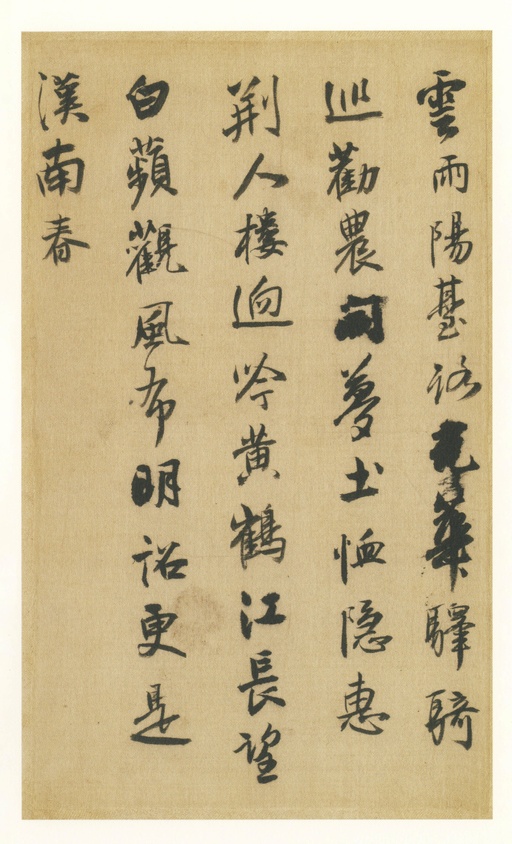 雲雨陽臺路光華驛騎
巡勸農雲夢土恤隱惠
荆人樓迥吟黄鶴江長望
白蘋觀風布明詔更是
漢南春